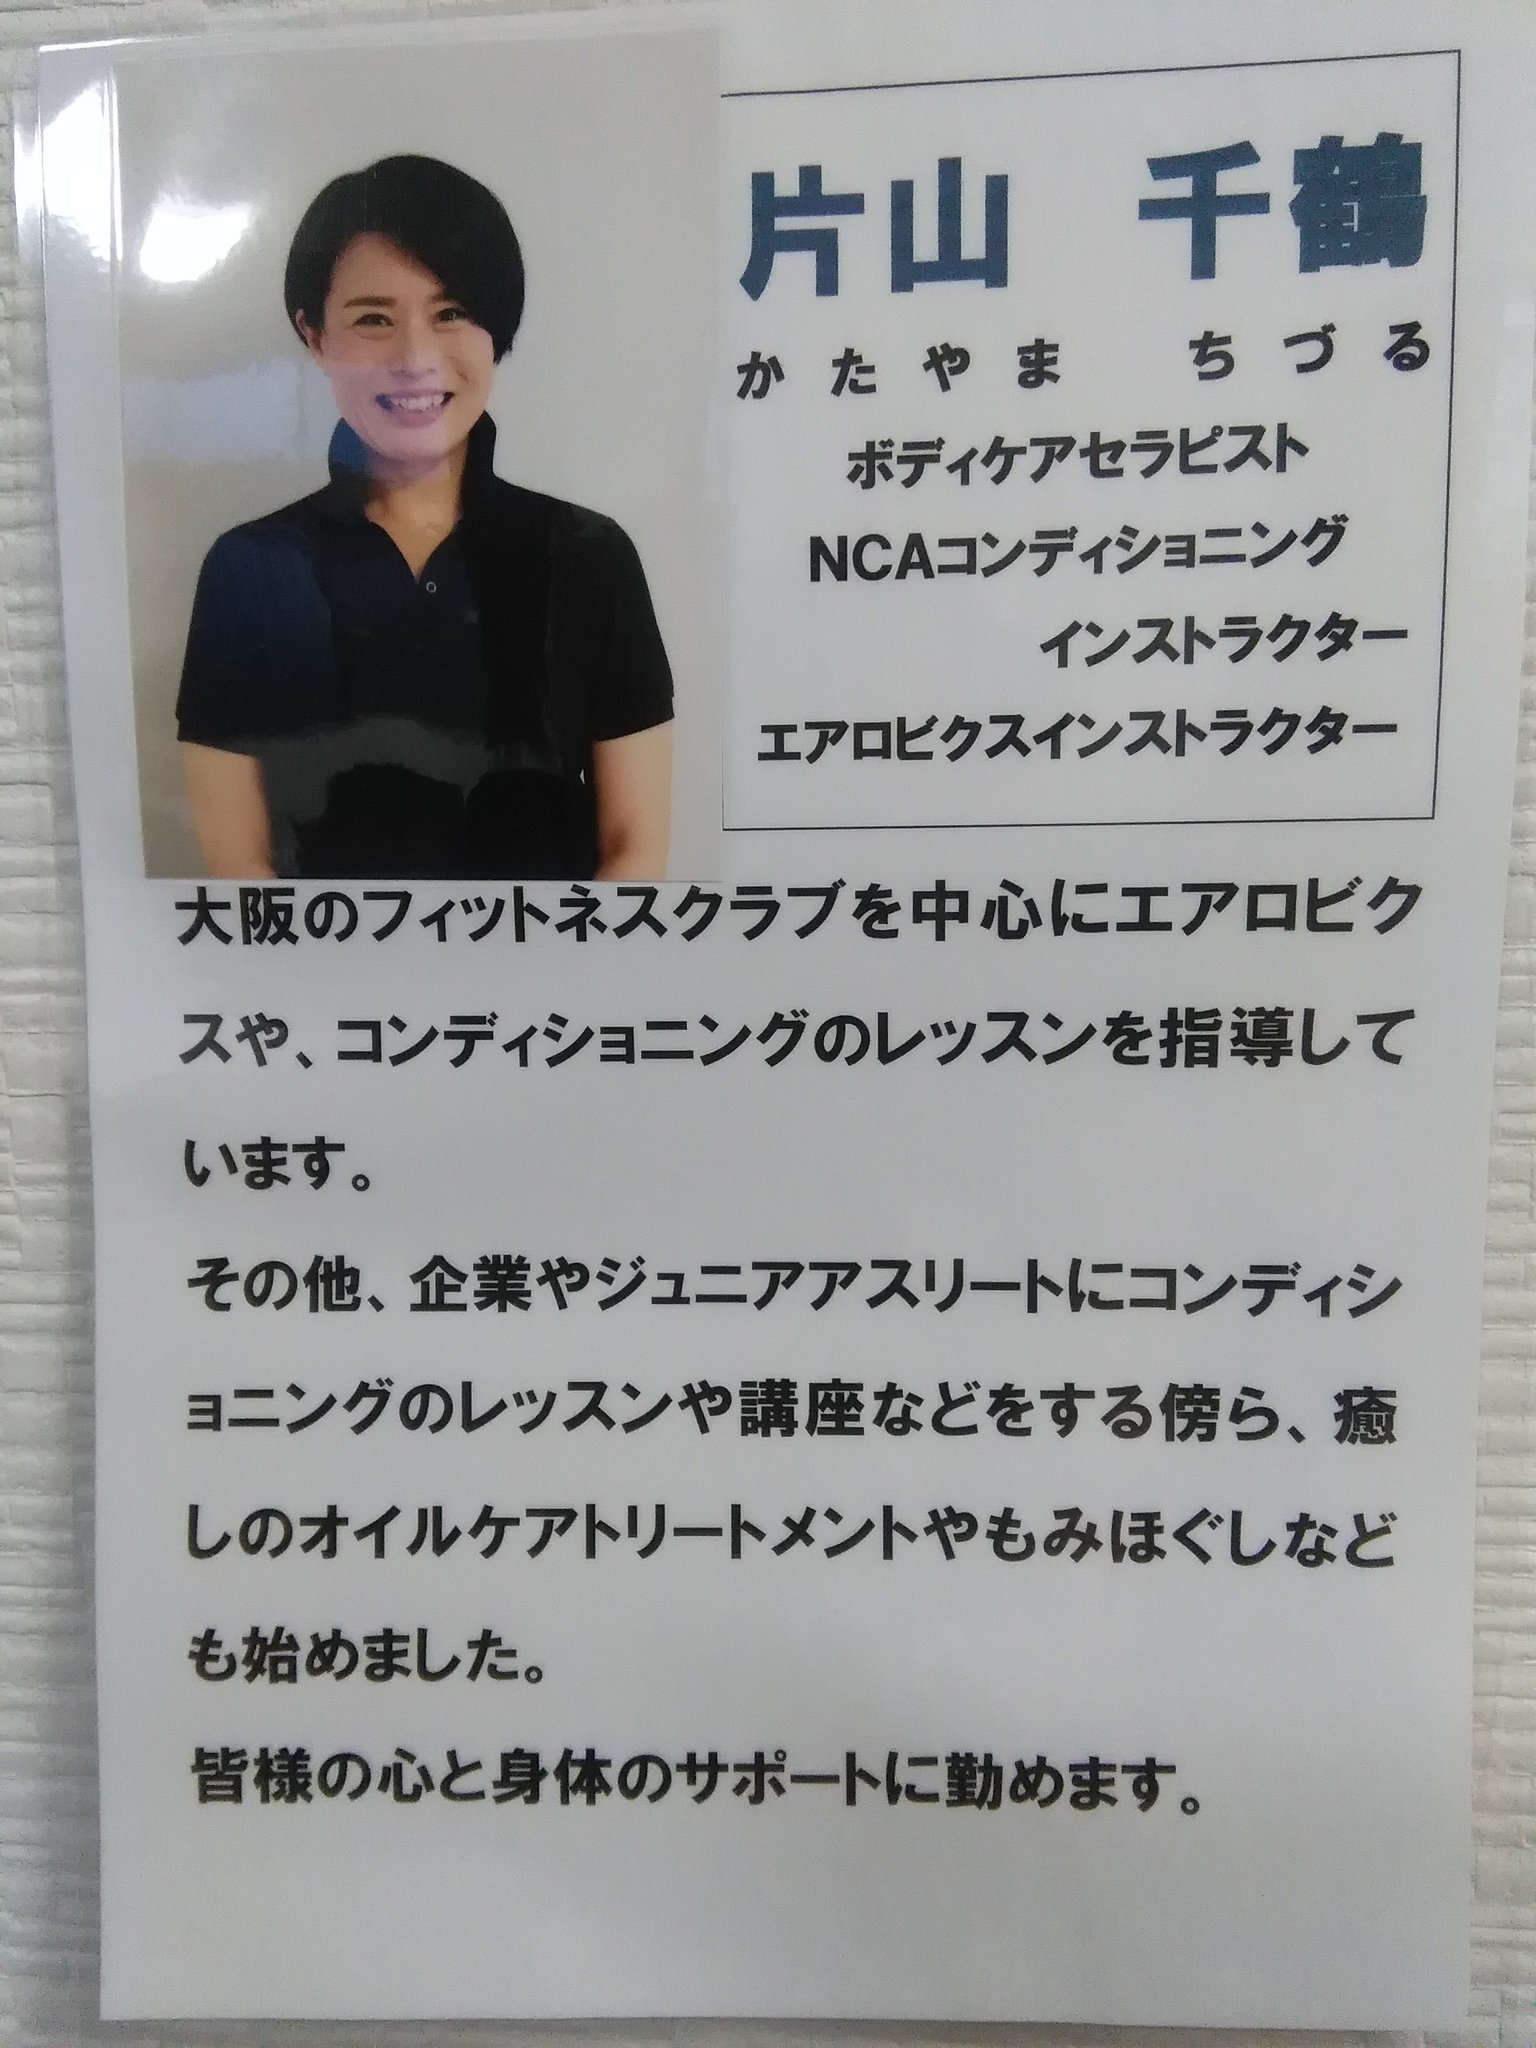 片山　千鶴
かたやま　ちづる
ボディケアセラピスト
NCAコンディショニング
インストラクター
エアロビクスインストラクター
大阪のフィットネスクラブを中心にエアロビク
スや、コンディショニングのレッスンを指導して
います。
その他、企業やジュニアアスリートにコンディシ
ョニングのレッスンや講座などをする傍ら、癒
しのオイルケアトリートメントやもみほぐしなど
も始めました。
皆様の心と身体のサポートに勤めます。